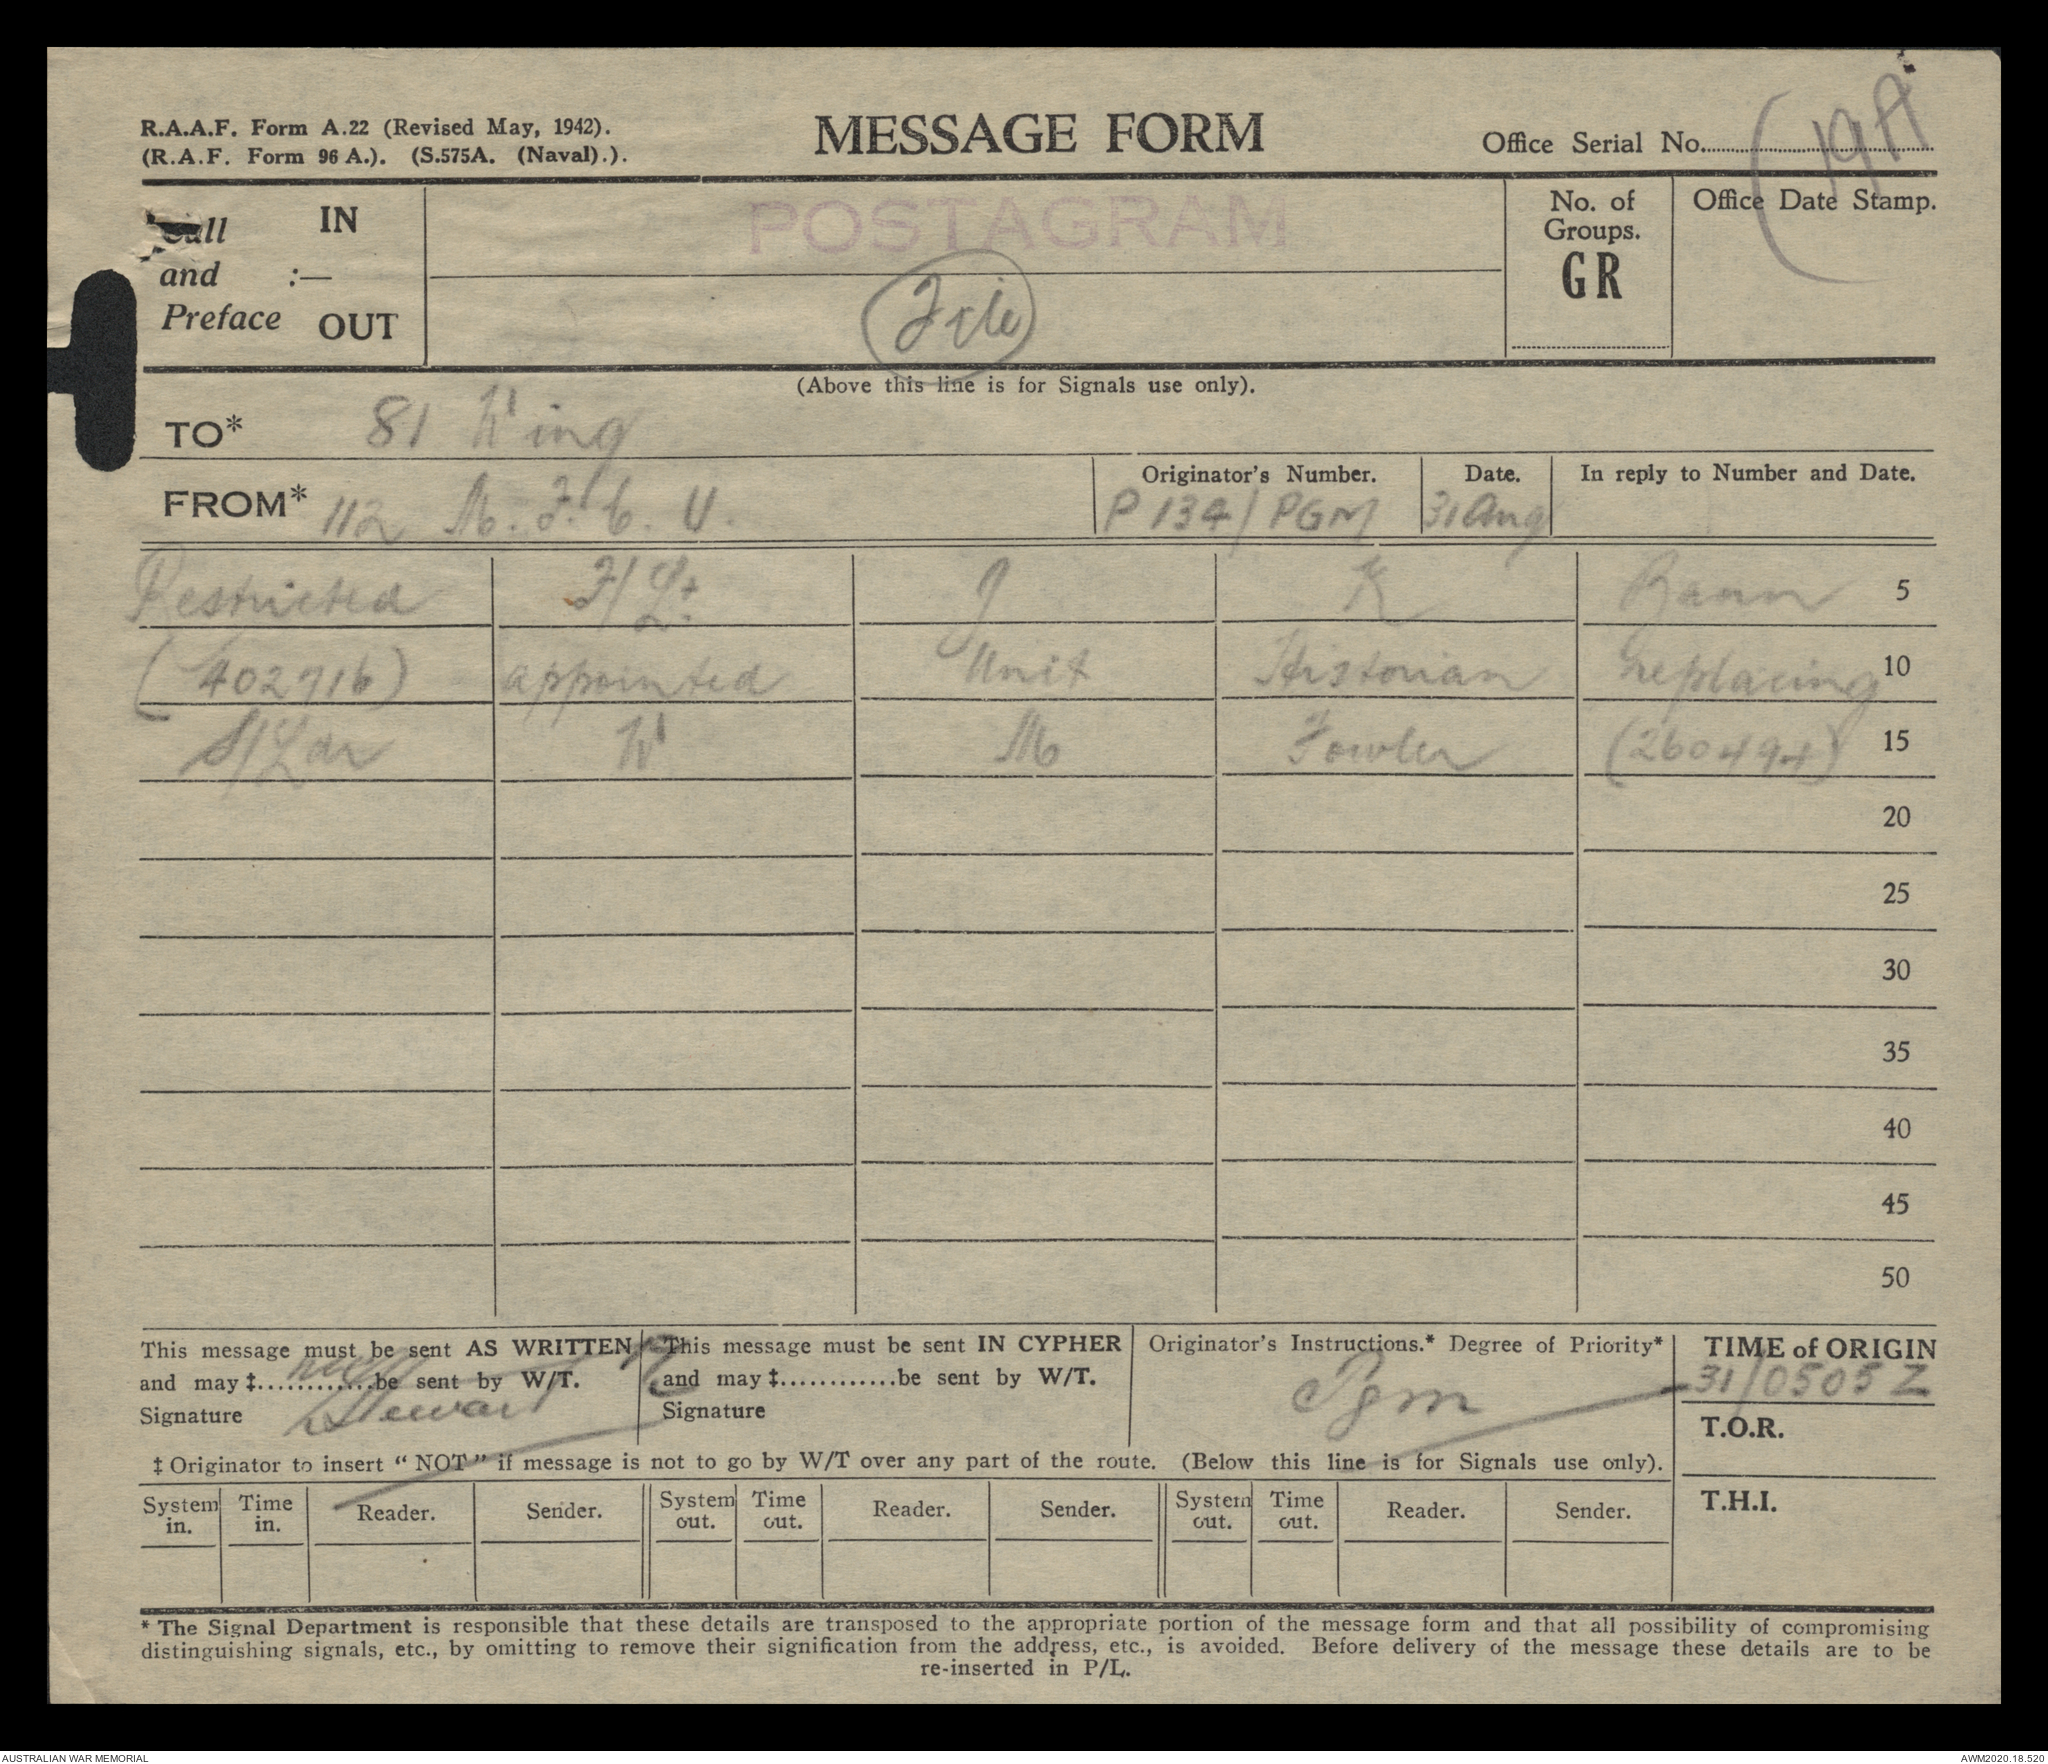 R.A.A.F. Form A.22 (Revised May, 1942).
(R.A.F. Form 96 A.). (S.575A. (Naval).).
MESSAGE FORM
Office Serial No. 19A
Call and Preface :— IN OUT
POSTAGRAM
File
No. of Groups.
GR
Office Date Stamp.
(Above this line is for Signals use only).
TO* 81 Wing
FROM* 112 M.F.C.U.
Originator's Number. P134/PGM
Date. 31 Aug
In reply to Number and Date.
Restricted F/Lt. J K Bann 5
(402716) appointed Unit Historian replacing 10
S/Ldr W M Fowler (260494) 15
20
25
30
35
40
45
50
This message must be sent AS WRITTEN
and may ‡............be sent by W/T.
Signature Stewart
This message must be sent IN CYPHER
and may ‡............be sent by W/T.
Signature
Originator's Instructions.* Degree of Priority*
Pgm
TIME of ORIGIN
31/0505Z
T.O.R.
T.H.I.
‡ Originator to insert “ NOT ” if message is not to go by W/T over any part of the route. (Below this line is for Signals use only).
System in. Time in. Reader. Sender. System out. Time out. Reader. Sender. System out. Time out. Reader. Sender.
* The Signal Department is responsible that these details are transposed to the appropriate portion of the message form and that all possibility of compromising
distinguishing signals, etc., by omitting to remove their signification from the address, etc., is avoided. Before delivery of the message these details are to be
re-inserted in P/L.
AUSTRALIAN WAR MEMORIAL
AWM2020.18.520